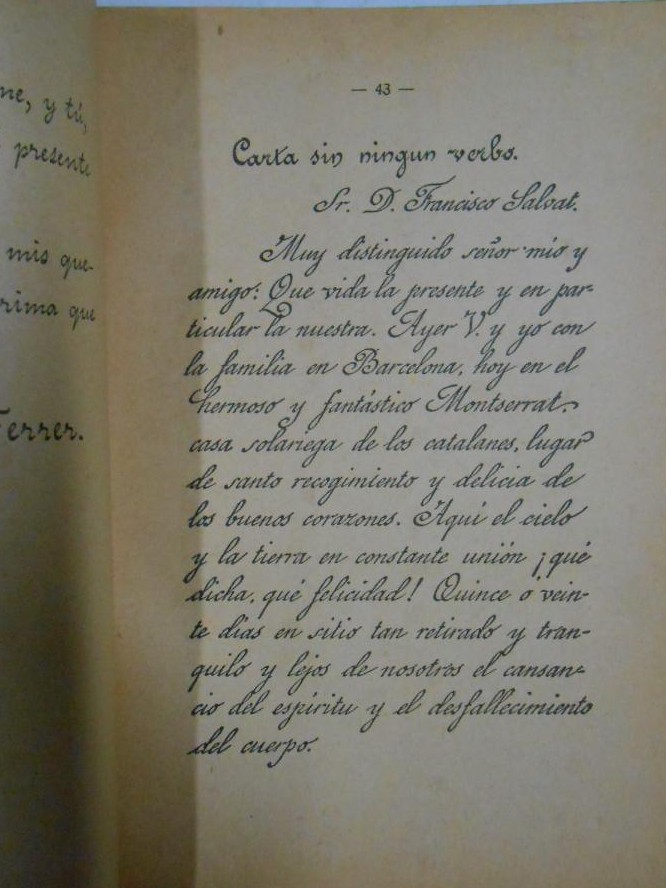 ne, y tú,
presente
mis que-
rima que
Ferrer.
— 43 —
Carta sin ningun verbo.
Sr. D. Francisco Salvat.
Muy distinguido señor mio y
amigo: Que vida la presente y en par-
ticular la nuestra. Ayer V. y yo con
la familia en Barcelona, hoy en el
hermoso y fantástico Montserrat,
casa solariega de los catalanes, lugar
de santo recogimiento y delicia de
los buenos corazones. Aquí el cielo
y la tierra en constante unión ¡qué
dicha, qué felicidad! Quince o vein-
te días en sitio tan retirado y tran-
quilo y lejos de nosotros el cansan-
cio del espíritu y el desfallecimiento
del cuerpo.